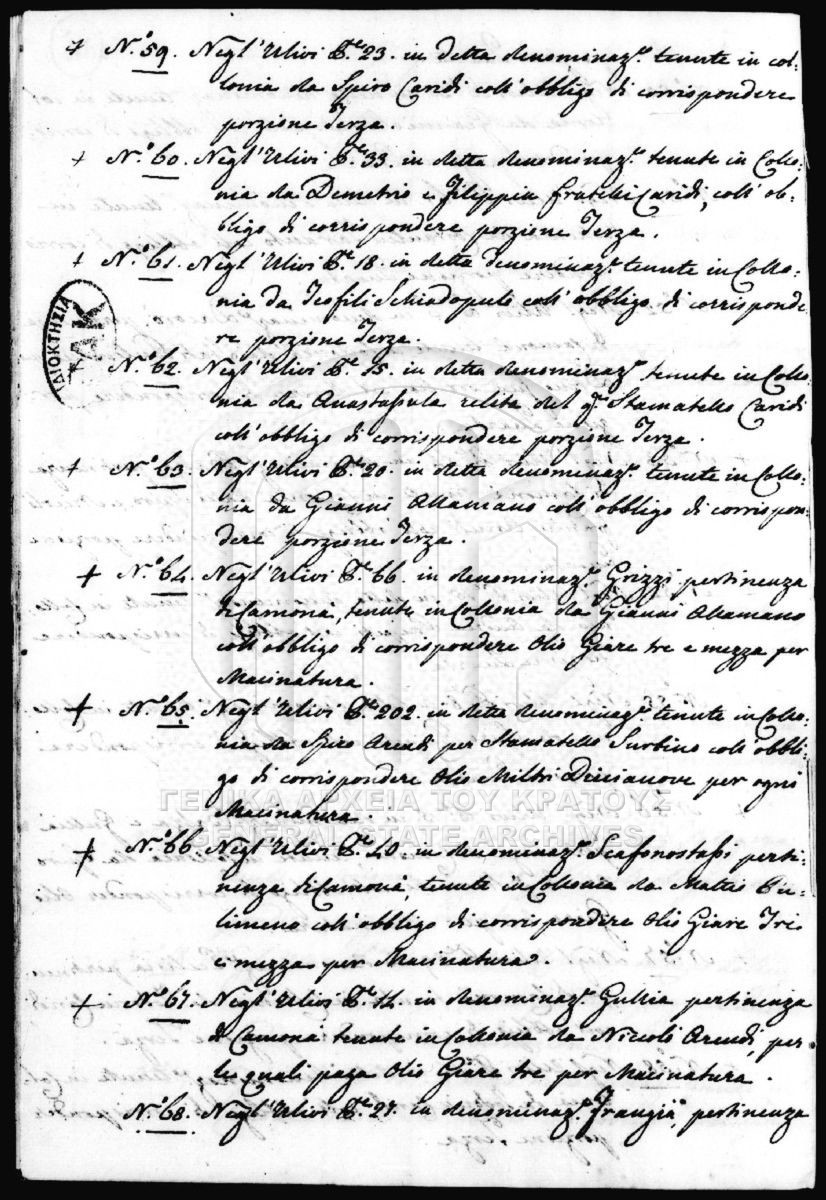 + N.º 59. Negl'Ulivi P.te 23. in detta denominaz.e tenute in col:
lonia da Spiro Caridi coll'obbligo di corrispondere
porzione Terza.
+ N.º 60. Negl'Ulivi P.te 33. in detta denominaz.e tenute in Collo:
nia da Demetrio e Filippin fratelli Caridi, coll'ob:
bligo di corrispondere porzione Terza.
+ N.º 61. Negl'Ulivi P.te 18. in detta denominaz.e tenute in Collo:
nia da Teofili Schiadopulo coll'obbligo di corrisponde
re porzione Terza.
N.º 62. Negl'Ulivi P.te 15. in detta denominaz.e tenute in Collo
nia da Anastassula relita del q.m Stamatello Caridi
coll'obbligo di corrispondere porzione Terza.
+ N.º 63. Negl'Ulivi P.te 20. in detta denominaz.e tenute in Collo:
nia da Gianni Allamano coll'obbligo di corrispon:
dere porzione Terza.
+ N.º 64. Negl'Ulivi P.te 66. in denominaz.e Grizzi pertinenza
di Camonà, tenute in Collonia da Gianni Allamano
coll'obbligo di corrispondere Olio Giare tre e mezza per
Macinatura.
+ N.º 65. Negl'Ulivi P.te 202. in detta denominaz.e tenute in Collo:
nia da Spiro Arendi per Stamatello Surbino coll'obbli:
go di corrispondere Olio Miltri Diecianove per ogni
Macinatura.
+ N.º 66. Negl'Ulivi P.te 40. in denominaz.e Scafonostassi perti:
nenza di Camonà, tenute in Collonia da Mattio
limeno coll'obbligo di corrispondere Olio Giare Tre
e mezza per Macinatura.
+ N.º 67. Negl'Ulivi P.te 14. in denominaz.e Gullia pertinenza
di Camonà tenute in Collonia da Niccolò Arendi, per
le quali paga Olio Giare tre per Macinatura.
N.º 68. Negl'Ulivi P.te 27. in denominaz.e Frangià, pertinenza
ΙΔΙΟΚΤΗΣΙΑ
ΓΑΚ
ΓΕΝΙΚΑ ΑΡΧΕΙΑ ΤΟΥ ΚΡΑΤΟΥΣ
GENERAL STATE ARCHIVES